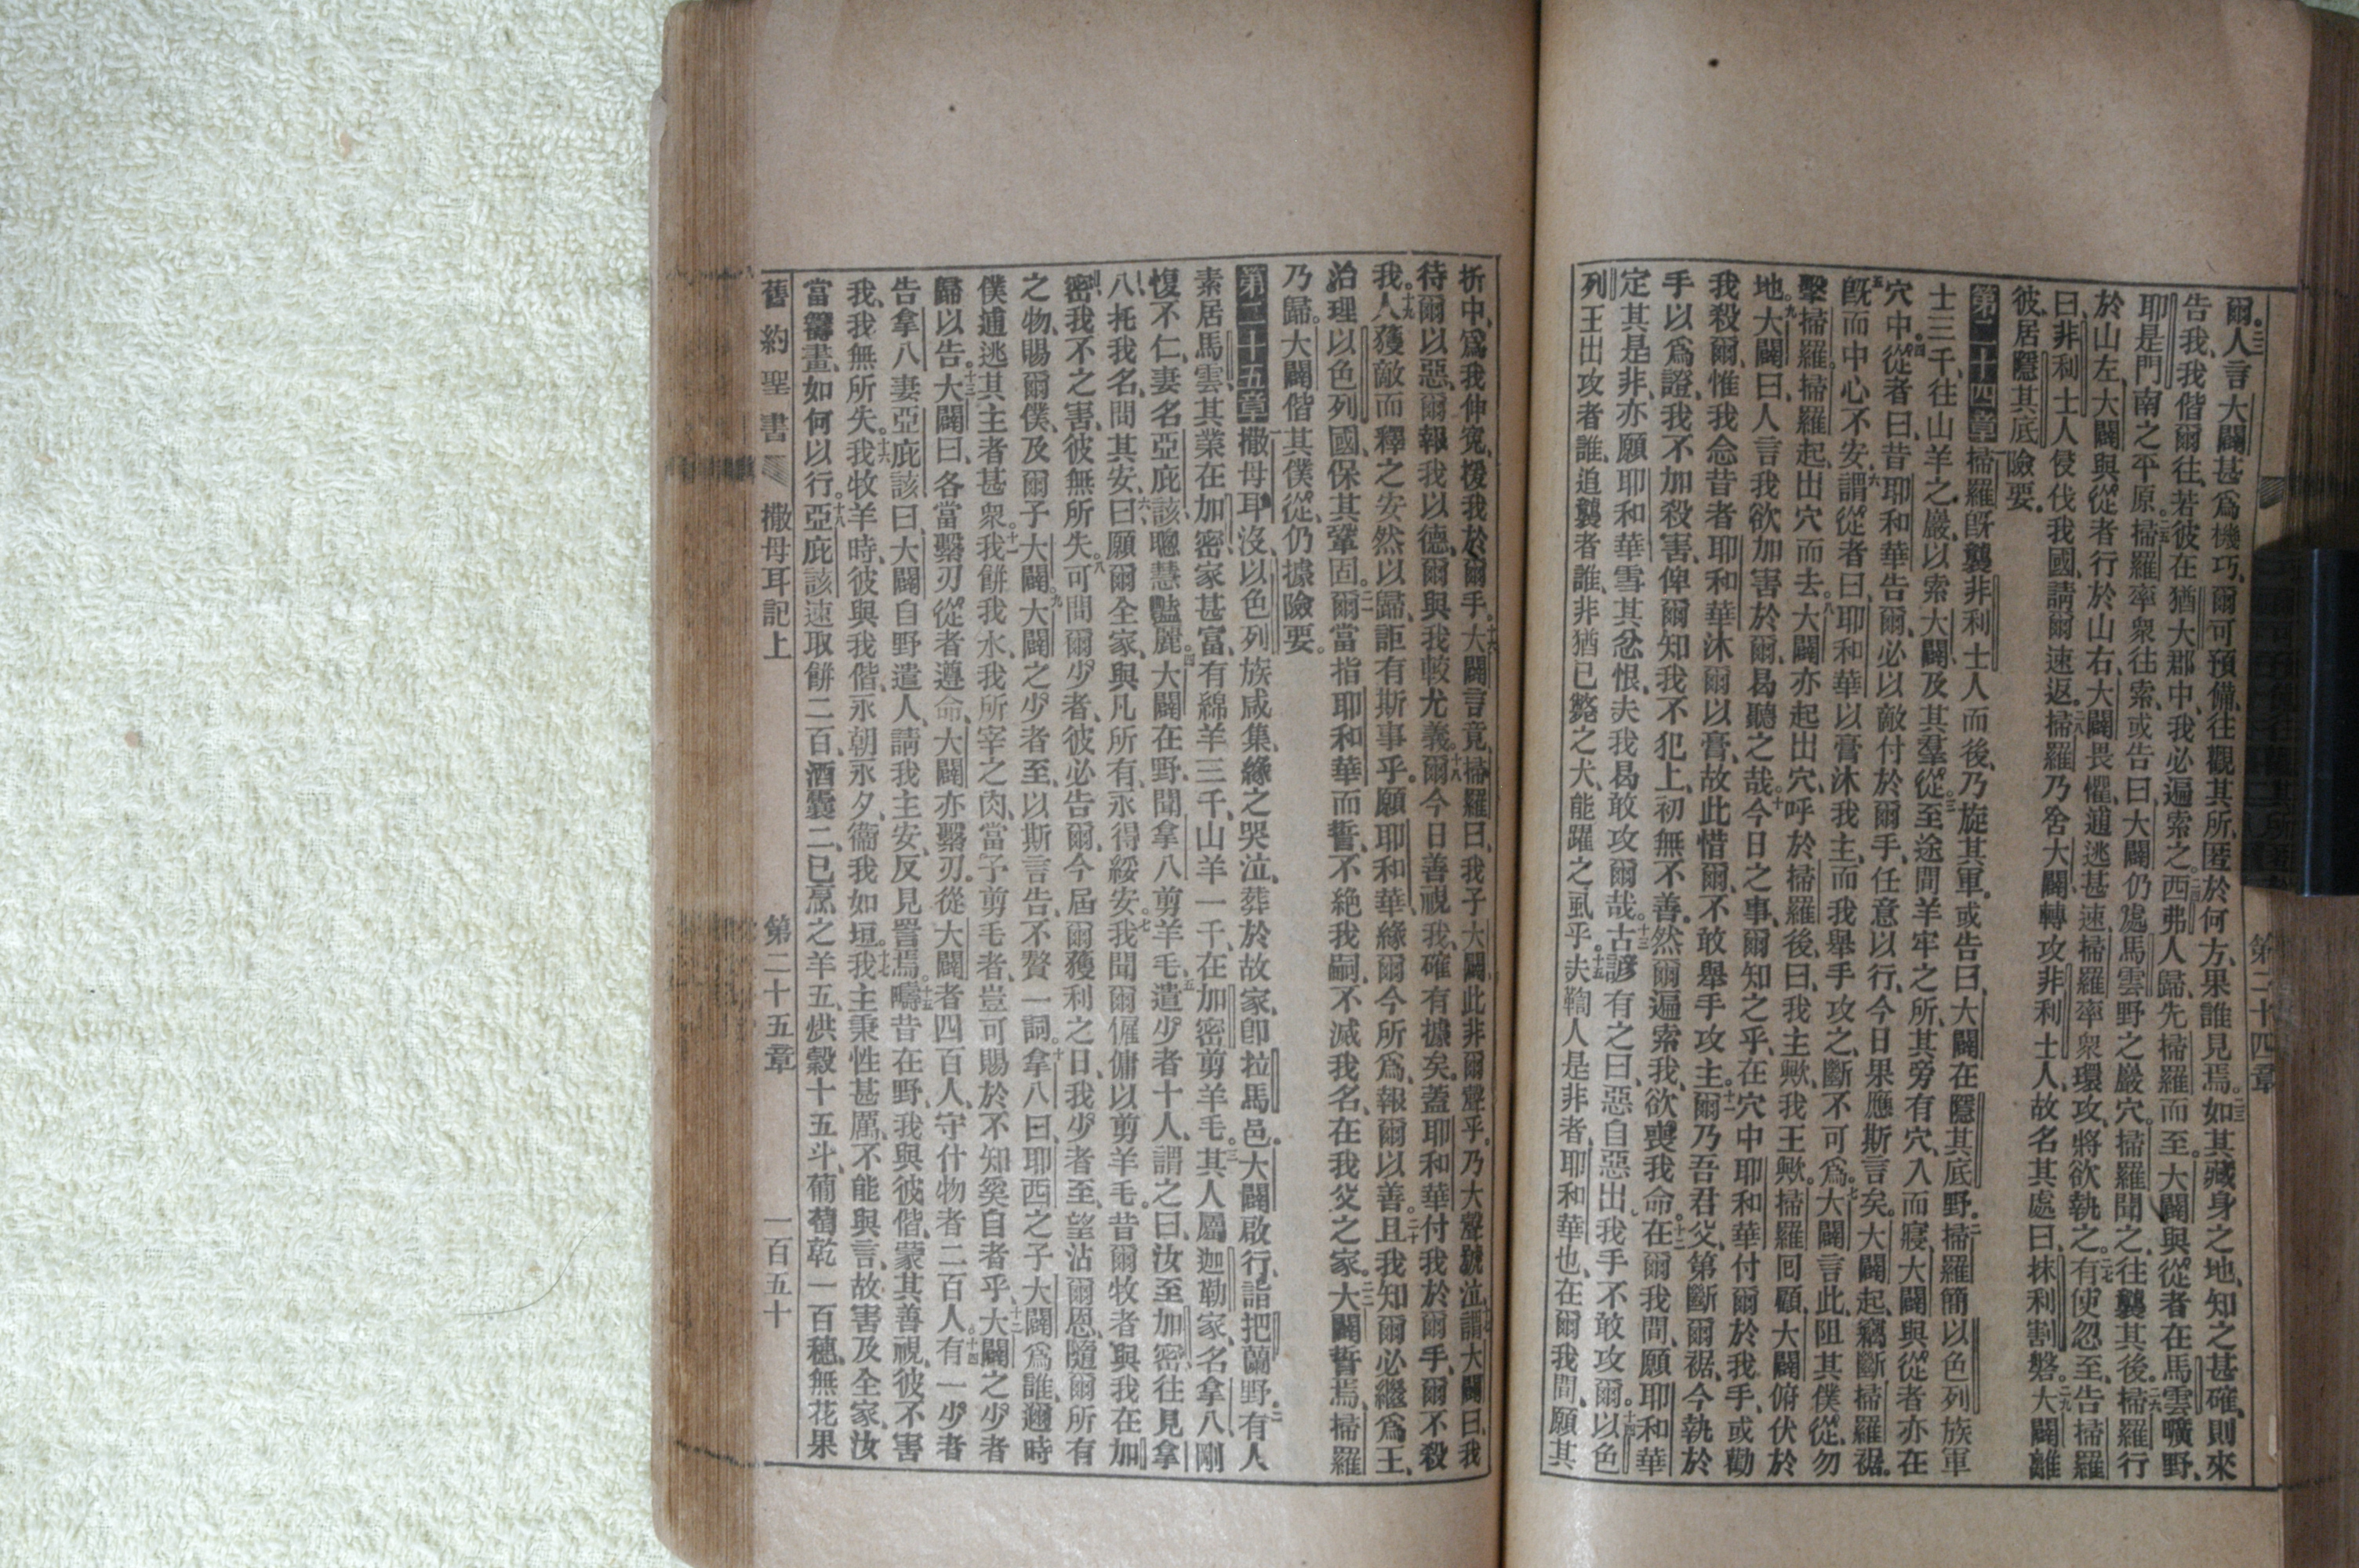 第二十四章
爾、三人言大闢甚爲機巧、爾可預備、往觀其所、匿於何方、果誰見焉。如其藏身之地、知之甚確、則來
告我、我偕爾往、若彼在猶大郡中、我必遍索之。西弗人歸、先掃羅而至。大闢與從者在馬雲曠野、
耶是門南之平原。掃羅率衆往索、或告曰、大闢仍處馬雲野之巖穴。掃羅聞之、往襲其後。掃羅行
於山左、大闢與從者行於山右、大闢畏懼、逋逃甚速、掃羅率衆環攻、將欲執之。有使忽至、告掃羅
曰、非利士人侵伐我國、請爾速返。掃羅乃舍大闢、轉攻非利士人、故名其處曰、抹利割磐。大闢離
彼、居隱其底險要。
第二十四章 掃羅旣襲非利士人而後、乃旋其軍。或告曰、大闢在隱其底野。掃羅簡以色列族軍
士三千、往山羊之巖、以索大闢、及其羣從。至途間羊牢之所、其旁有穴、入而寢、大闢與從者亦在
穴中。從者曰、昔耶和華告爾、必以敵付於爾手、任意以行、今日果應斯言矣。大闢起、竊斷掃羅裾。
旣而中心不安、謂從者曰、耶和華以膏沐我主、而我舉手攻之、斷不可爲。大闢言此、阻其僕從、勿
擊掃羅。掃羅起、出穴而去。大闢亦起出穴、呼於掃羅後、曰、我主歟、我王歟。掃羅回顧、大闢俯伏於
地。大闢曰、人言我欲加害於爾、曷聽之哉。今日之事、爾知之乎、在穴中耶和華付爾於我手、或勸
我殺爾、惟我念昔者耶和華沐爾以膏、故此惜爾、不敢舉手攻主。爾乃吾君父、第斷爾裾、今執於
手以爲證、我不加殺害、俾爾知我不犯上、初無不善。然爾遍索我、欲喪我命。在爾我間、願耶和華
定其是非、亦願耶和華雪其忿恨、夫我曷敢攻爾哉。古諺有之曰、惡自惡出。我手不敢攻爾。以色
列王出攻者誰、追襲者誰、非猶已斃之犬、能躍之虱乎。夫鞫人是非者、耶和華也、在爾我間、願其
折中、爲我伸寃、援我於爾手。大闢言竟、掃羅曰、我子大闢、此非爾聲乎。乃大聲號泣、謂大闢曰、我
待爾以惡、爾報我以德、爾與我較尤義。爾今日善視我、確有據矣。蓋耶和華付我於爾手、爾不殺
我。人獲敵而釋之安然以歸、詎有斯事乎。願耶和華、緣爾今所爲、報爾以善。且我知爾必繼爲王、
治理以色列國、保其鞏固。爾當指耶和華而誓、不絕我嗣、不滅我名、在我父之家。大闢誓焉、掃羅
乃歸。大闢偕其僕從、仍據險要。
第二十五章 撒母耳沒、以色列族咸集、緣之哭泣、葬於故家、卽拉馬邑。大闢啟行、詣把蘭野。有人
素居馬雲、其業在加密、家甚富、有綿羊三千、山羊一千、在加密剪羊毛。其人屬迦勒家、名拿八、剛
愎不仁、妻名亞庇該、聰慧豔麗。大闢在野、聞拿八剪羊毛、遣少者十人、謂之曰、汝至加密、往見拿
八、托我名、問其安、曰、願爾全家、與凡所有、永得綏安。我聞爾僱傭以剪羊毛。昔爾牧者與我在加
密、我不之害、彼無所失。可問爾少者、彼必告爾、今屆爾獲利之日、我少者至、望沾爾恩、隨爾所有
之物、賜爾僕、及爾子大闢。大闢之少者至、以斯言告、不贅一詞。拿八曰、耶西之子大闢爲誰、邇時
僕逋逃其主者甚衆。我餅我水、我所宰之肉、當予剪毛者、豈可賜於不知奚自者乎。大闢之少者
歸以告。大闢曰、各當繫刃、從者遵命、大闢亦繫刃。從大闢者四百人、守什物者二百人。有一少者
告拿八妻亞庇該曰、大闢自野遣人、請我主安、反見詈焉。疇昔在野、我與彼偕、蒙其善視、彼不害
我、我無所失。我牧羊時、彼與我偕、永朝永夕、衞我如垣。我主秉性甚厲、不能與言、故害及全家、汝
當籌畫、如何以行。亞庇該速取餅二百、酒囊二、已烹之羊五、烘穀十五斗、葡萄乾一百穗、無花果
舊約聖書 撒母耳記上 第二十五章 一百五十